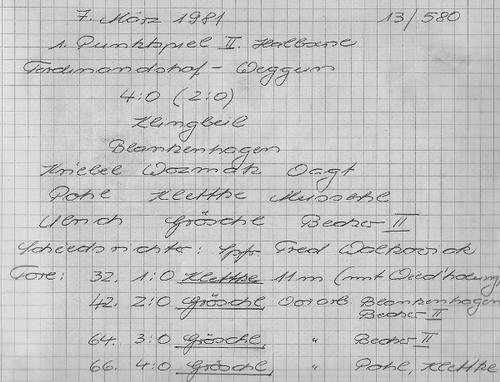 7. März 1981 13/580
1. Punktspiel II. Halbserie
Ferdinandshof - Deggun
4:0 (2:0)
Klingbeil
Blankenhagen
Kriebel Wozmak Vagt
Pohl Klettke Mussehl
Ulrich Gröschl Becker II
Schiedsrichter: Spfr. Fred Walkowiak
Tore: 32. 1:0 Klettke 11m (mit Wied'holung)
42. 2:0 Gröschl, Vorarb. Blankenhagen
Becker II
64. 3:0 Gröschl, " Becker II
66. 4:0 Gröschl, " Pohl, Klettke